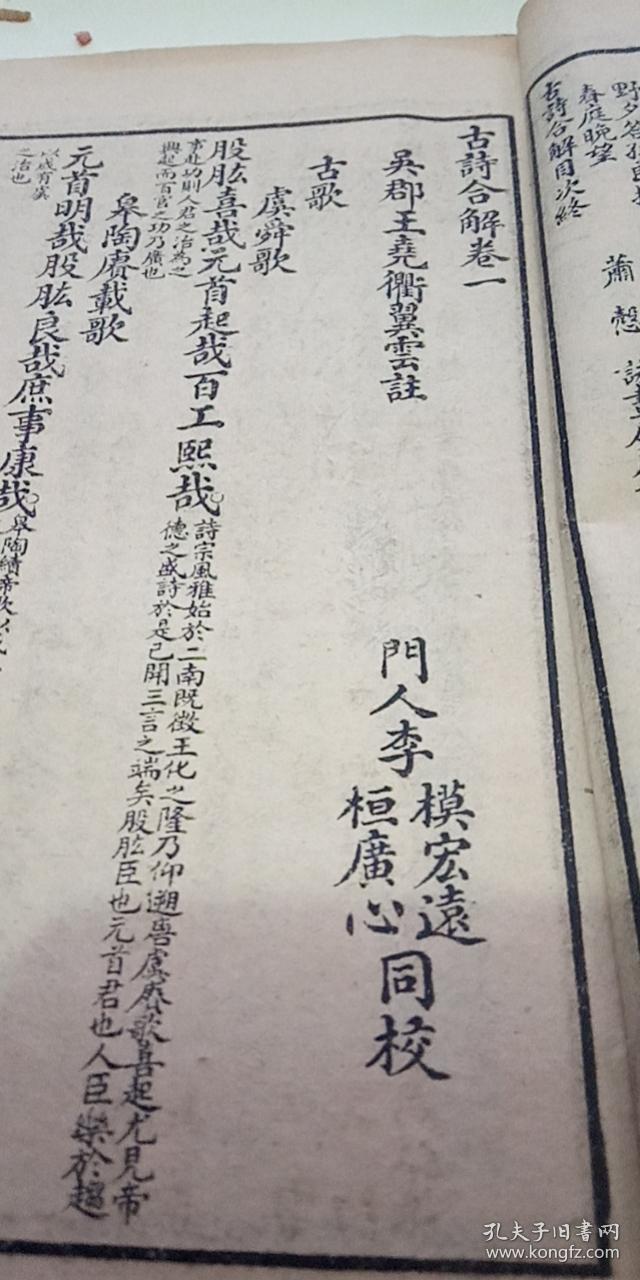 野夕答孫
春庭晚望
蕭愨
古詩合解目次終
古詩合解卷一
吳郡王堯衢翼雲註
門人李模宏遠
桓廣心同校
古歌
虞舜歌
股肱喜哉元首起哉百工熙哉詩宗風雅始於二南既徵王化之隆乃仰遡唐虞賡歌喜起尤見帝
德之盛詩於是已開三言之端矣股肱臣也元首君也人臣樂於趨
事赴功則人君之治為之
興起而百官之功乃廣也
皋陶賡載歌
元首明哉股肱良哉庶事康哉皋陶續帝歌以
以成有虞
之治也
孔夫子旧书网
www.kongfz.com